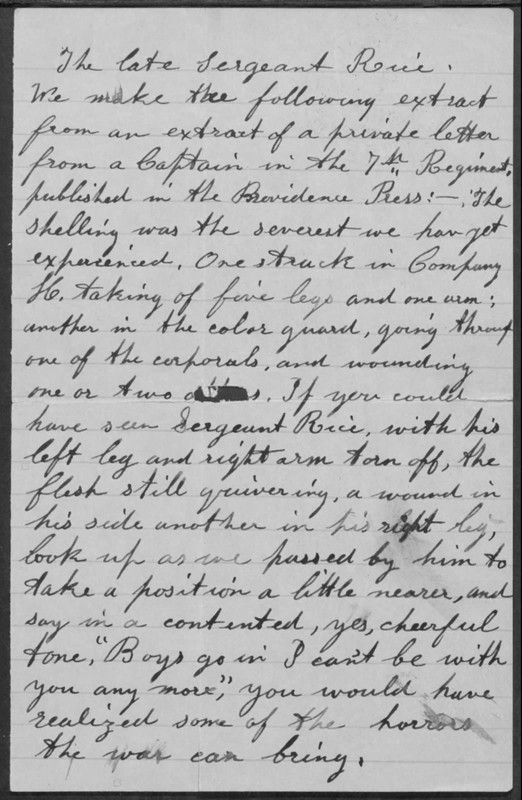 The late Sergeant Rice.
We make the following extract
from an extract of a private letter
from a Captain in the 7th Regiment,
published in the Providence Press:— "The
shelling was the severest we hav yet
experienced. One struck in Company
H. taking of five legs and one arm;
another in the color guard, going throug
one of the corporals, and wounding
one or two others. If you could
have seen Sergeant Rice, with his
left leg and right arm torn off, the
flesh still quivering, a wound in
his side another in his right leg,
look up as we passed by him to
take a position a little nearer, and
say in a contented, yes, cheerful
tone, "Boys go in I can't be with
you any more", you would have
realized some of the horrors
the war can bring.